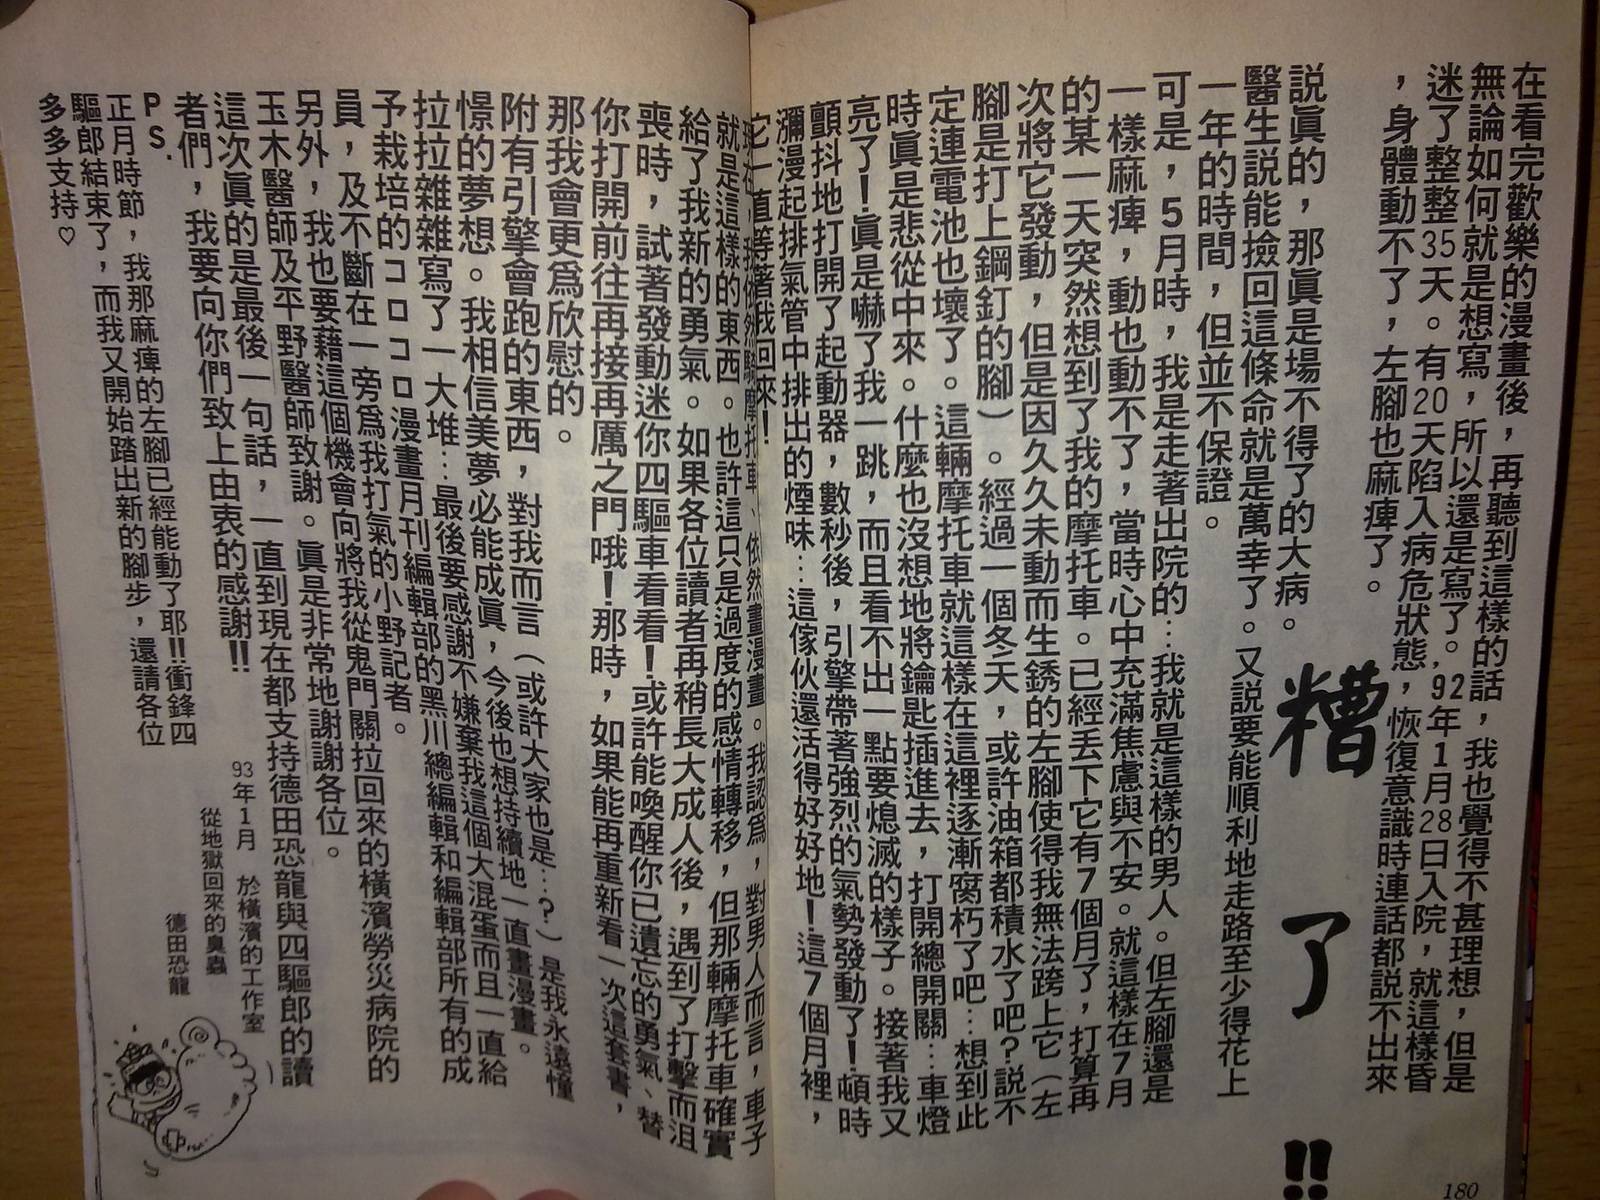 在看完歡樂的漫畫後，再聽到這樣的話，我也覺得不甚理想，但是
無論如何就是想寫，所以還是寫了。'92年1月28日入院，就這樣昏
迷了整整35天。有20天陷入病危狀態，恢復意識時連話都說不出來
，身體動不了，左腳也麻痺了。
糟了!!
說眞的，那眞是場不得了的大病。
醫生說能撿回這條命就是萬幸了。又說要能順利地走路至少得花上
一年的時間，但並不保證。
可是，5月時，我是走著出院的…我就是這樣的男人。但左腳還是
一樣麻痺，動也動不了，當時心中充滿焦慮與不安。就這樣在7月
的某一天突然想到了我的摩托車。已經丟下它有7個月了，打算再
次將它發動，但是因久久未動而生銹的左腳使得我無法跨上它（左
腳是打上鋼釘的腳）。經過一個冬天，或許油箱都積水了吧？說不
定連電池也壞了。這輛摩托車就這樣在這裡逐漸腐朽了吧…想到此
時眞是悲從中來。什麼也沒想地將鑰匙插進去，打開總開關…車燈
亮了！眞是嚇了我一跳，而且看不出一點要熄滅的樣子。接著我又
顫抖地打開了起動器，數秒後，引擎帶著強烈的氣勢發動了！頓時
瀰漫起排氣管中排出的煙味…這傢伙還活得好好地！這7個月裡，
它一直等著我回來！
現在，我依然騎摩托車、依然畫漫畫。我認爲，對男人而言，車子
就是這樣的東西。也許這只是過度的感情轉移，但那輛摩托車確實
給了我新的勇氣。如果各位讀者再稍長大成人後，遇到了打擊而沮
喪時，試著發動迷你四驅車看看！或許能喚醒你已遺忘的勇氣、替
你打開前往再接再厲之門哦！那時，如果能再重新看一次這套書，
那我會更爲欣慰的。
附有引擎會跑的東西，對我而言（或許大家也是…？）是我永遠憧
憬的夢想。我相信美夢必能成眞，今後也想持續地一直畫漫畫。
拉拉雜雜寫了一大堆…最後要感謝不嫌棄我這個大混蛋而且一直給
予栽培的コロコロ漫畫月刊編輯部的黑川總編輯和編輯部所有的成
員，及不斷在一旁爲我打氣的小野記者。
另外，我也要藉這個機會向將我從鬼門關拉回來的橫濱勞災病院的
玉木醫師及平野醫師致謝。眞是非常地謝謝各位。
這次眞的是最後一句話，一直到現在都支持德田恐龍與四驅郎的讀
者們，我要向你們致上由衷的感謝!!
93年1月　於橫濱的工作室
從地獄回來的臭蟲
德田恐龍
PS.
正月時節，我那麻痺的左腳已經能動了耶!!衝鋒四
驅郎結束了，而我又開始踏出新的腳步，還請各位
多多支持♡
180